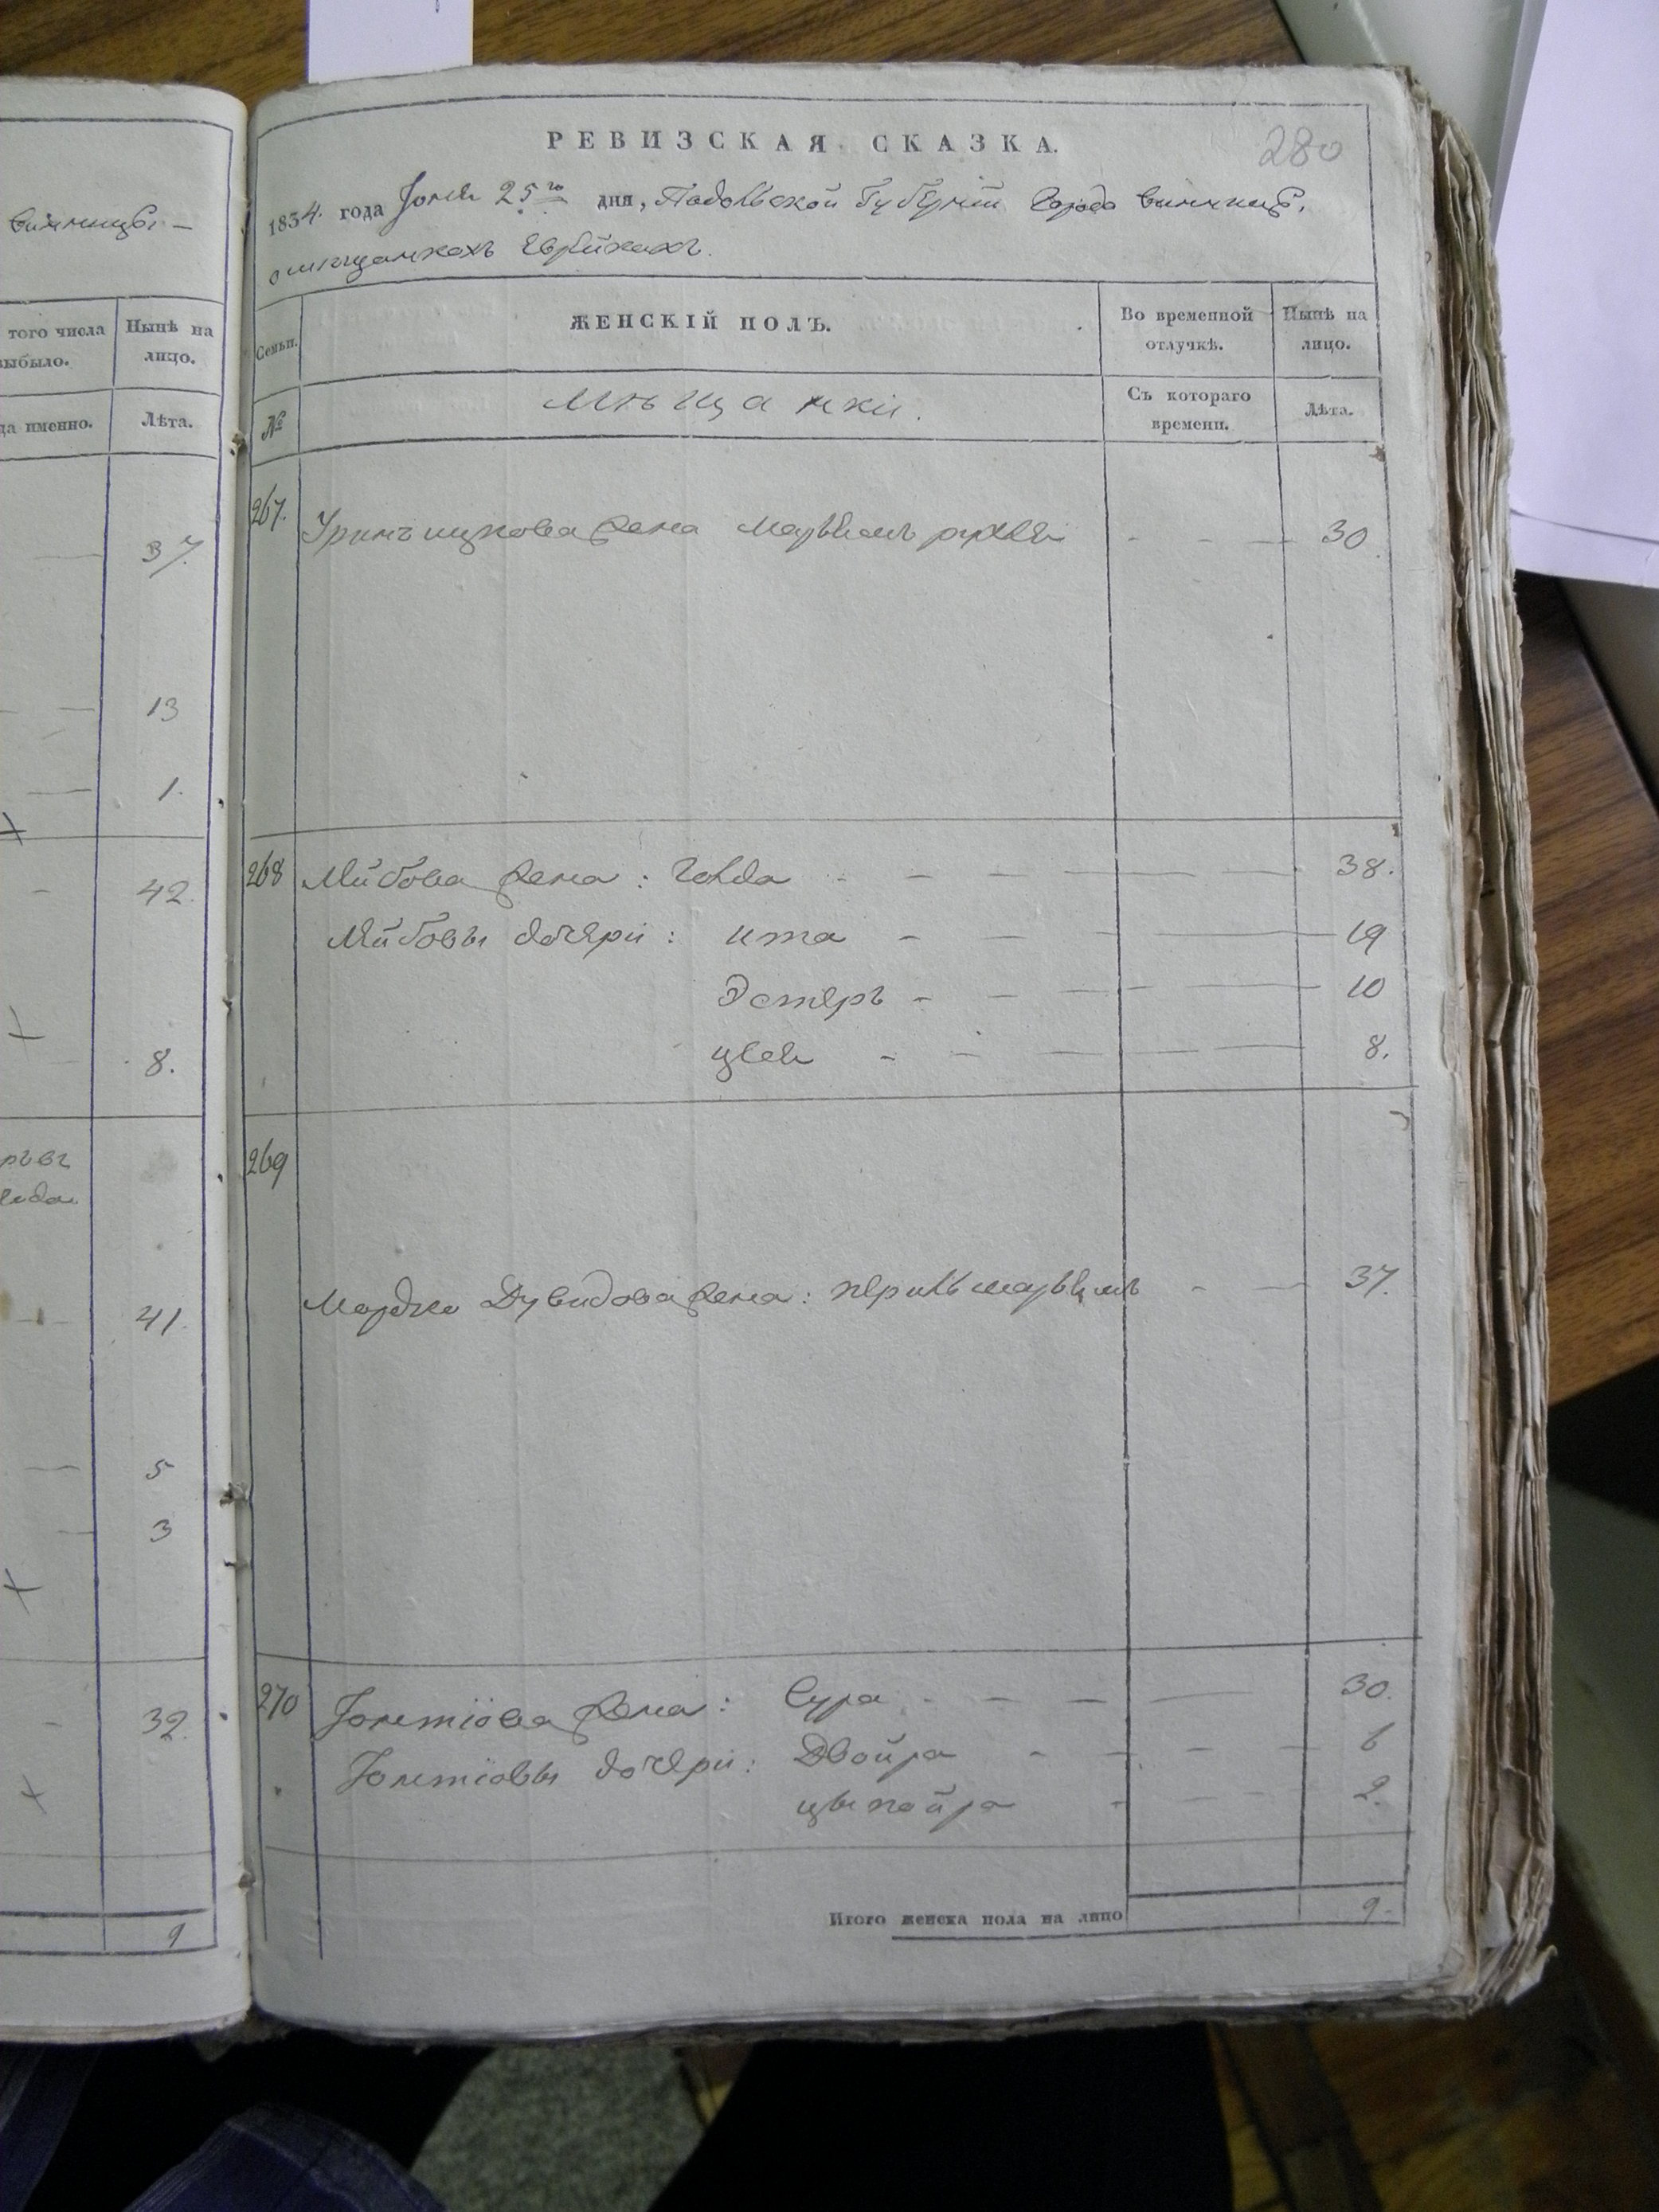 винницы —
того числа
выбыло.
Нынѣ на
лицо.
да именно.
Лѣта.
37.
13
1.
42
8.
41.
5
3
32.
9
280
РЕВИЗСКАЯ СКАЗКА.
1834. года Іюня 25го дня, Подольской Губерніи Города Винницы,
о мѣщанкахъ Еврейкахъ.
Семьи.
ЖЕНСКІЙ ПОЛЪ.
Во временной
отлучкѣ.
Нынѣ на
лицо.
№
Мѣщанки.
Съ котораго
времени.
Лѣта.
267. жена 30.
268 Лейбова жена: Голда 38.
Лейбовы дочери: ита 19
Эстеръ 10
8.
269
Мордко Дувидова жена: 37.
270 жена: Сура 30.
дочери: Двойра 6
ципойра 2.
Итого женска пола на лицо 9